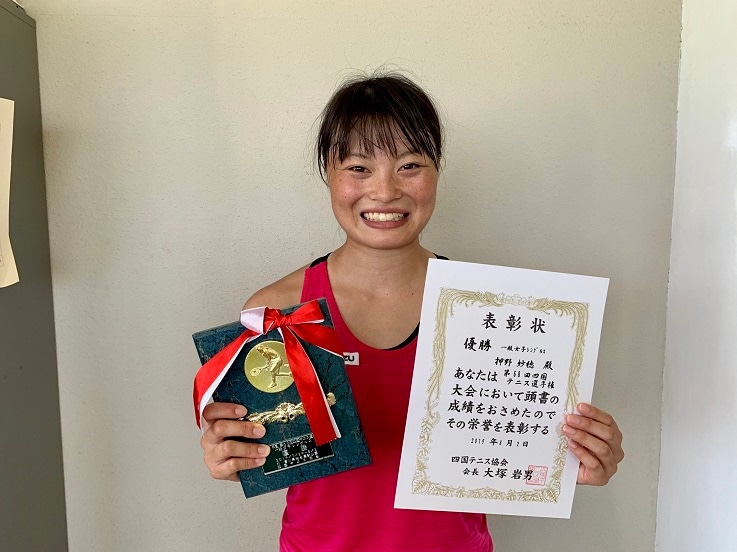 表彰状
優勝 一般女子シングルス
押野 紗穂 殿
あなたは 第68回四国テニス選手権
大会において頭書の
成績をおさめたので
その栄誉を表彰する
2019年6月2日
四国テニス協会
会長 大塚岩男
優勝